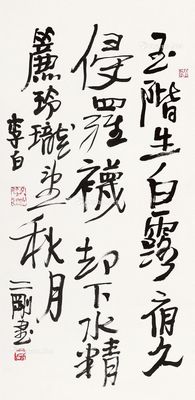 玉階生白露宥久
侵羅襪却下水精
簾玲瓏望秋月
李白
二剛書